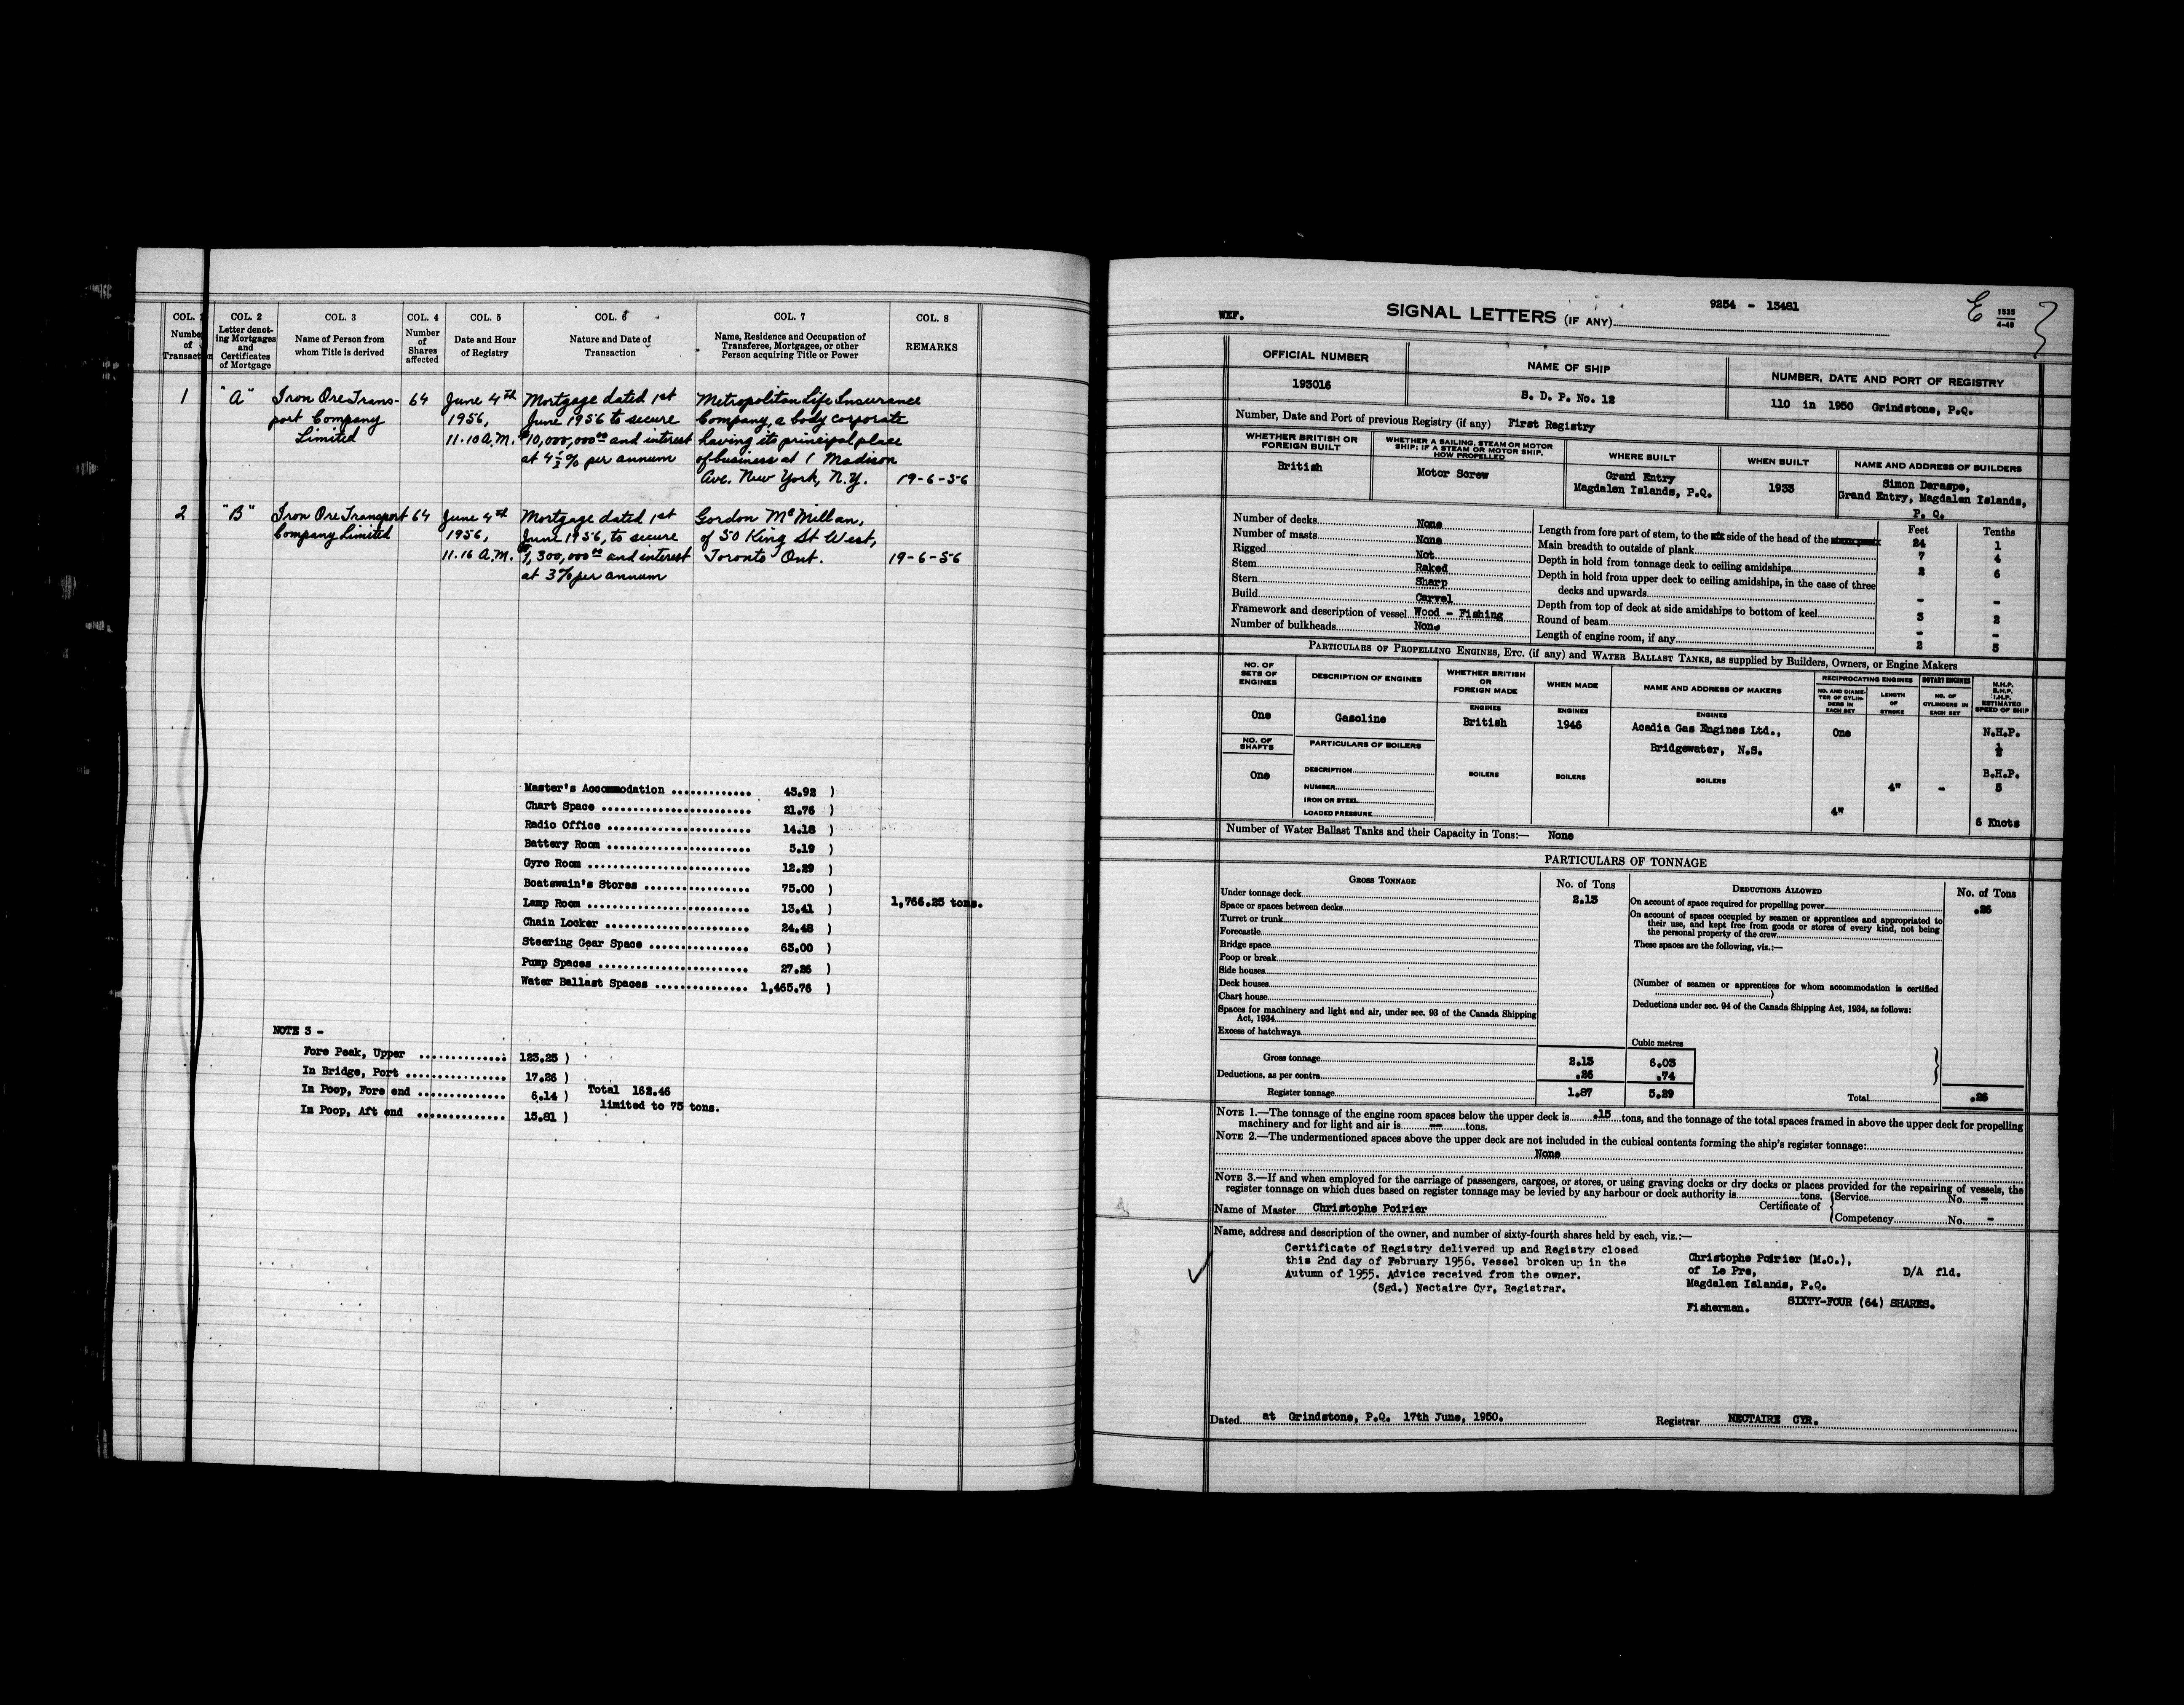 COL. 1
Number
of
Transaction
COL. 2
Letter denot-
ing Mortgages
and
Certificates
of Mortgage
COL. 3
Name of Person from
whom Title is derived
COL. 4
Number
of
Shares
affected
COL. 5
Date and Hour
of Registry
COL. 6
Nature and Date of
Transaction
COL. 7
Name, Residence and Occupation of
Transferee, Mortgagee, or other
Person acquiring Title or Power
COL. 8
REMARKS
1 "A" Iron Ore Trans- 64 June 4th Mortgage dated 1st Metropolitan Life Insurance
port Company 1956, June 1956 to secure Company, a body corporate
Limited 11.10 A.M. $10,000,000.00 and interest having its principal place
at 4½% per annum of business at 1 Madison
Ave. New York, N.Y. 19-6-56
2 "B" Iron Ore Transport 64 June 4th Mortgage dated 1st Gordon McMillan,
Company Limited 1956, June 1956, to secure of 50 King St West,
11.16 A.M. 1,300,000.00 and interest Toronto Ont. 19-6-56
at 3% per annum
Master's Accommodation ............ 43.92 )
Chart Space ....................... 21.76 )
Radio Office ...................... 14.18 )
Battery Room ...................... 5.19 )
Gyro Room ......................... 12.29 )
Boatswain's Stores ................ 75.00 )
Lamp Room ......................... 13.41 ) 1,766.25 tons.
Chain Locker ...................... 24.48 )
Steering Gear Space ............... 63.00 )
Pump Spaces ....................... 27.26 )
Water Ballast Spaces .............. 1,465.76 )
NOTE 3 -
Fore Peak, Upper .............. 123.25 )
In Bridge, Port ................ 17.26 )
In Poop, Fore end .............. 6.14 ) Total 162.46
In Poop, Aft end .............. 15.81 ) limited to 75 tons.
WEF.
SIGNAL LETTERS (IF ANY)
9254 - 13481
E
1535
4-49
OFFICIAL NUMBER
193016
NAME OF SHIP
S. D. P. No. 12
NUMBER, DATE AND PORT OF REGISTRY
110 in 1950 Grindstone, P.Q.
Number, Date and Port of previous Registry (if any) First Registry
WHETHER BRITISH OR
FOREIGN BUILT
British
WHETHER A SAILING, STEAM OR MOTOR
SHIP; IF A STEAM OR MOTOR SHIP,
HOW PROPELLED
Motor Screw
WHERE BUILT
Grand Entry
Magdalen Islands, P.Q.
WHEN BUILT
1933
NAME AND ADDRESS OF BUILDERS
Simon Deraspe,
Grand Entry, Magdalen Islands,
P. Q.
Number of decks None
Number of masts None
Rigged Not
Stem Raked
Stern Sharp
Build Carvel
Framework and description of vessel Wood - Fishing
Number of bulkheads None
Feet Tenths
Length from fore part of stem, to the side of the head of the 24 1
Main breadth to outside of plank 7 4
Depth in hold from tonnage deck to ceiling amidships 2 6
Depth in hold from upper deck to ceiling amidships, in the case of three
decks and upwards - -
Depth from top of deck at side amidships to bottom of keel 3 2
Round of beam - -
Length of engine room, if any 2 5
PARTICULARS OF PROPELLING ENGINES, ETC. (if any) and WATER BALLAST TANKS, as supplied by Builders, Owners, or Engine Makers
NO. OF
SETS OF
ENGINES
One
NO. OF
SHAFTS
One
DESCRIPTION OF ENGINES
Gasoline
PARTICULARS OF BOILERS
DESCRIPTION
NUMBER
IRON OR STEEL
LOADED PRESSURE
WHETHER BRITISH
OR
FOREIGN MADE
ENGINES
British
BOILERS
WHEN MADE
ENGINES
1946
BOILERS
NAME AND ADDRESS OF MAKERS
ENGINES
Acadia Gas Engines Ltd.,
Bridgewater, N.S.
BOILERS
RECIPROCATING ENGINES
NO. AND DIAME-
TER OF CYLIN-
DERS IN
EACH SET
One
4"
LENGTH
OF
STROKE
4"
ROTARY ENGINES
NO. OF
CYLINDERS IN
EACH SET
-
N.H.P.
B.H.P.
I.H.P.
ESTIMATED
SPEED OF SHIP
N.H.P.
½
B.H.P.
5
6 Knots
Number of Water Ballast Tanks and their Capacity in Tons:— None
PARTICULARS OF TONNAGE
GROSS TONNAGE No. of Tons
Under tonnage deck 2.13
Space or spaces between decks
Turret or trunk
Forecastle
Bridge space
Poop or break
Side houses
Deck houses
Chart house
Spaces for machinery and light and air, under sec. 93 of the Canada Shipping
Act, 1934
Excess of hatchways
Cubic metres
Gross tonnage 2.13 6.03
Deductions, as per contra .26 .74
Register tonnage 1.87 5.29
DEDUCTIONS ALLOWED No. of Tons
On account of space required for propelling power .26
On account of spaces occupied by seamen or apprentices and appropriated to
their use, and kept free from goods or stores of every kind, not being
the personal property of the crew
These spaces are the following, viz.:—
(Number of seamen or apprentices for whom accommodation is certified
)
Deductions under sec. 94 of the Canada Shipping Act, 1934, as follows:
Total .26
NOTE 1.—The tonnage of the engine room spaces below the upper deck is .15 tons, and the tonnage of the total spaces framed in above the upper deck for propelling
machinery and for light and air is -- tons.
NOTE 2.—The undermentioned spaces above the upper deck are not included in the cubical contents forming the ship's register tonnage:
None
NOTE 3.—If and when employed for the carriage of passengers, cargoes, or stores, or using graving docks or dry docks or places provided for the repairing of vessels, the
register tonnage on which dues based on register tonnage may be levied by any harbour or dock authority is tons.
Name of Master Christophe Poirier
Certificate of
Service No. -
Competency No. -
Name, address and description of the owner, and number of sixty-fourth shares held by each, viz.:—
Certificate of Registry delivered up and Registry closed
this 2nd day of February 1956. Vessel broken up in the
Autumn of 1955. Advice received from the owner.
(Sgd.) Nectaire Cyr, Registrar.
Christophe Poirier (M.O.),
of Le Pre, D/A fld.
Magdalen Islands, P.Q.
Fisherman. SIXTY-FOUR (64) SHARES.
Dated at Grindstone, P.Q. 17th June, 1950.
Registrar NECTAIRE CYR.